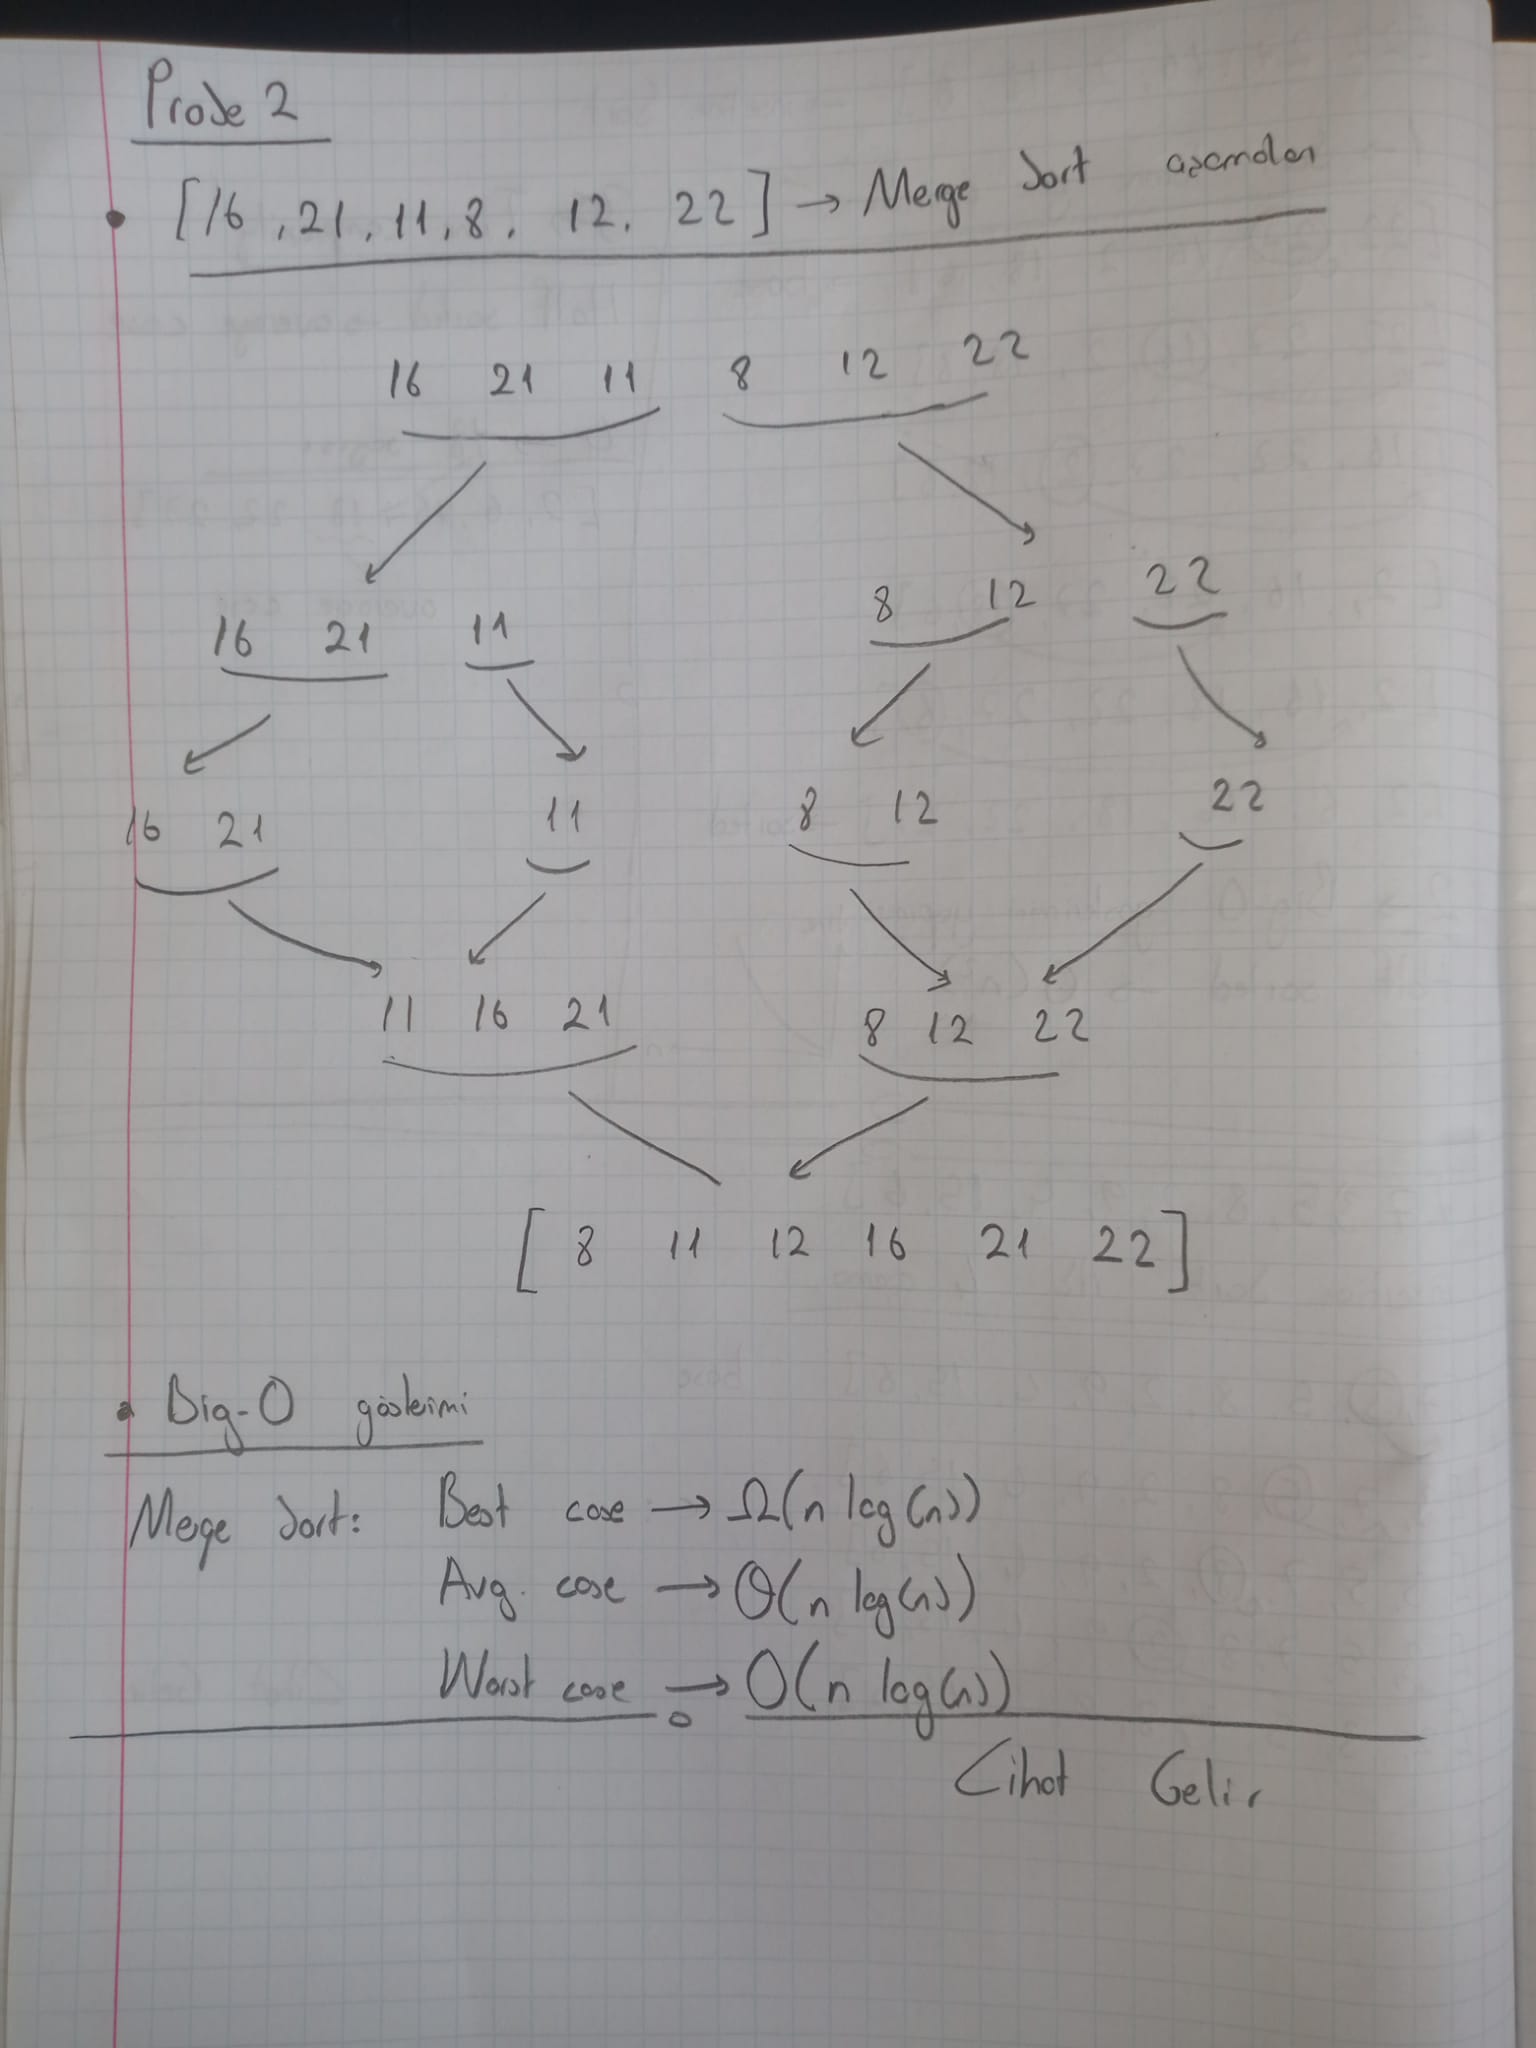 Proje 2
[16, 21, 11, 8, 12, 22] → Merge Sort aşamaları
16 21 11 8 12 22
16 21 11 8 12 22
16 21 11 8 12 22
11 16 21 8 12 22
[ 8 11 12 16 21 22 ]
Big-O gösterimi
Merge Sort: Best case → Ω(n log(n))
Avg. case → Θ(n log(n))
Worst case → O(n log(n))
Cihat Gelir